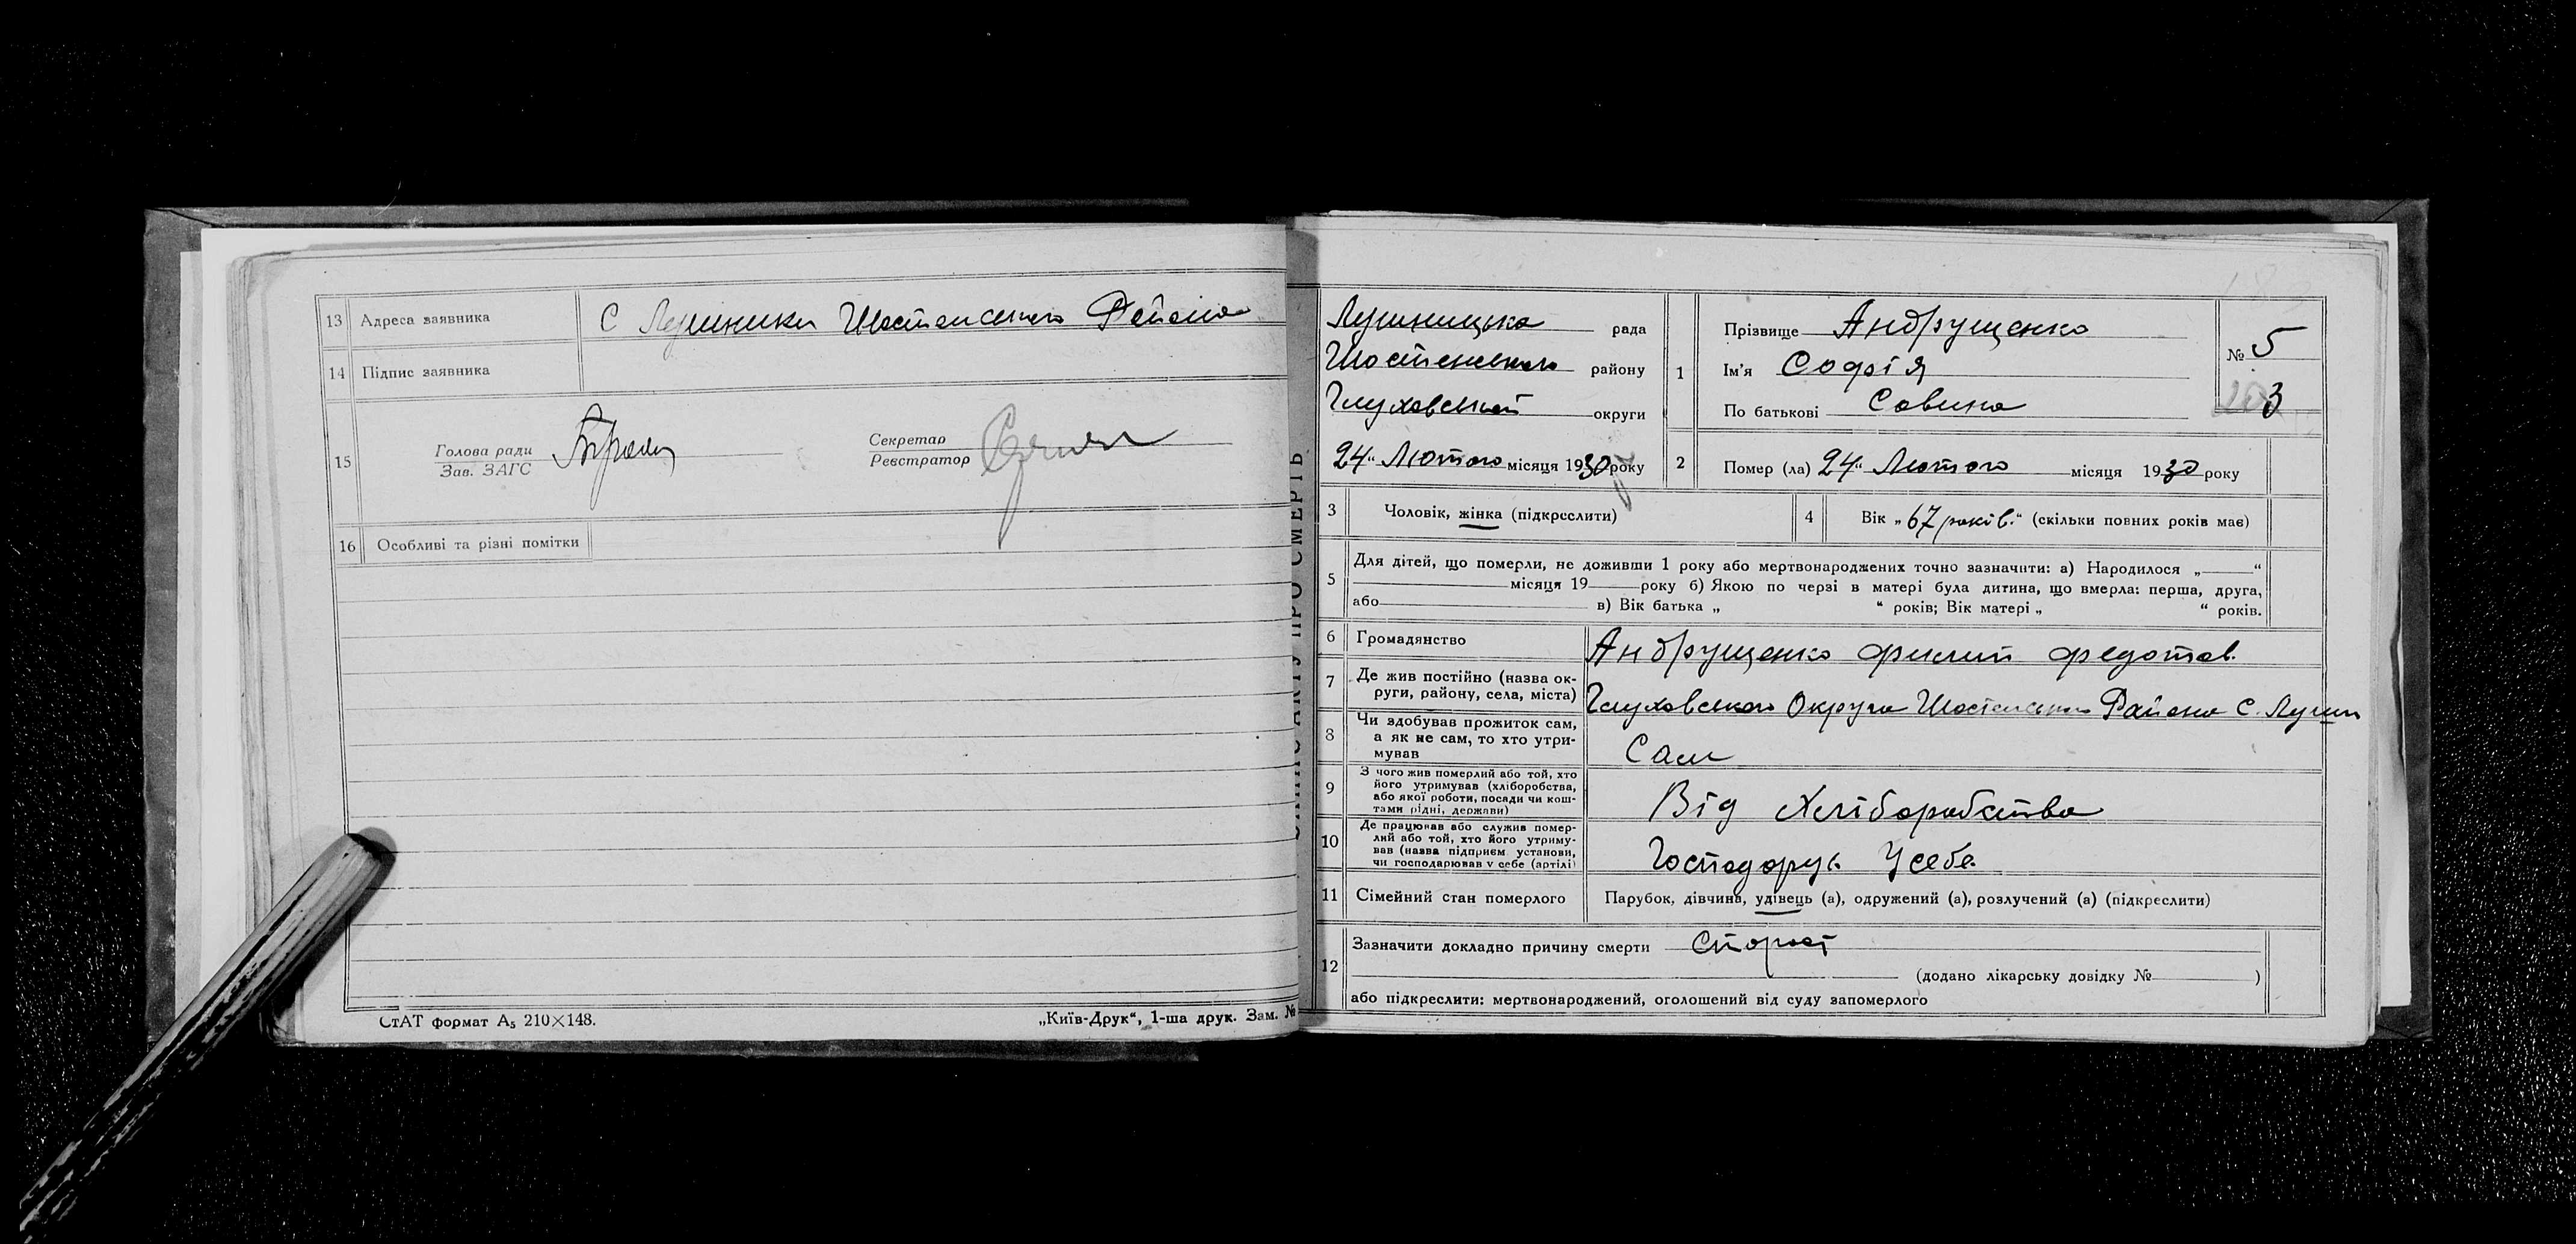 13 Адреса заявника С Лушники Шостенского Района
14 Підпис заявника
15 Голова ради
Зав. ЗАГС
Секретар
Реєстратор
16 Особливі та різні помітки
СтАТ формат А₅ 210×148.
„Київ-Друк“, 1-ша друк. Зам. №
Лушницька рада
Шостенского району
Глуховської округи
24“ Лютого місяця 1930 року
1 Прізвище Андрущенко
Ім'я Софія
По батькові Савина
№ 5
3
2 Помер (ла) 24“ Лютого місяця 1930 року
3 Чоловік, жінка (підкреслити)
4 Вік „67 років.“ (скільки повних років має)
5 Для дітей, що померли, не доживши 1 року або мертвонароджених точно зазначити: а) Народилося „ “
місяця 19 року б) Якою по черзі в матері була дитина, що вмерла: перша, друга,
або в) Вік батька „ “ років; Вік матері „ “ років.
6 Громадянство Андрущенко филип федотов.
7 Де жив постійно (назва ок-
руги, району, села, міста) Глуховского Округа Шостенского Района С. Лушн
8 Чи здобував прожиток сам,
а як не сам, то хто утри-
мував Сам
9 З чого жив померлий або той, хто
його утримував (хліборобства,
або якої роботи, посади чи кош-
тами рідні, держави) Від Хліборобства
10 Де працював або служив помер-
лий або той, хто його утриму-
вав (назва підприєм. установи,
чи господарював у себе (артілі) Господорує У себе
11 Сімейний стан померлого Парубок, дівчина, удівець (а), одружений (а), розлучений (а) (підкреслити)
12 Зазначити докладно причину смерти Старост
(додано лікарську довідку № )
або підкреслити: мертвонароджений, оголошений від суду запомерлого